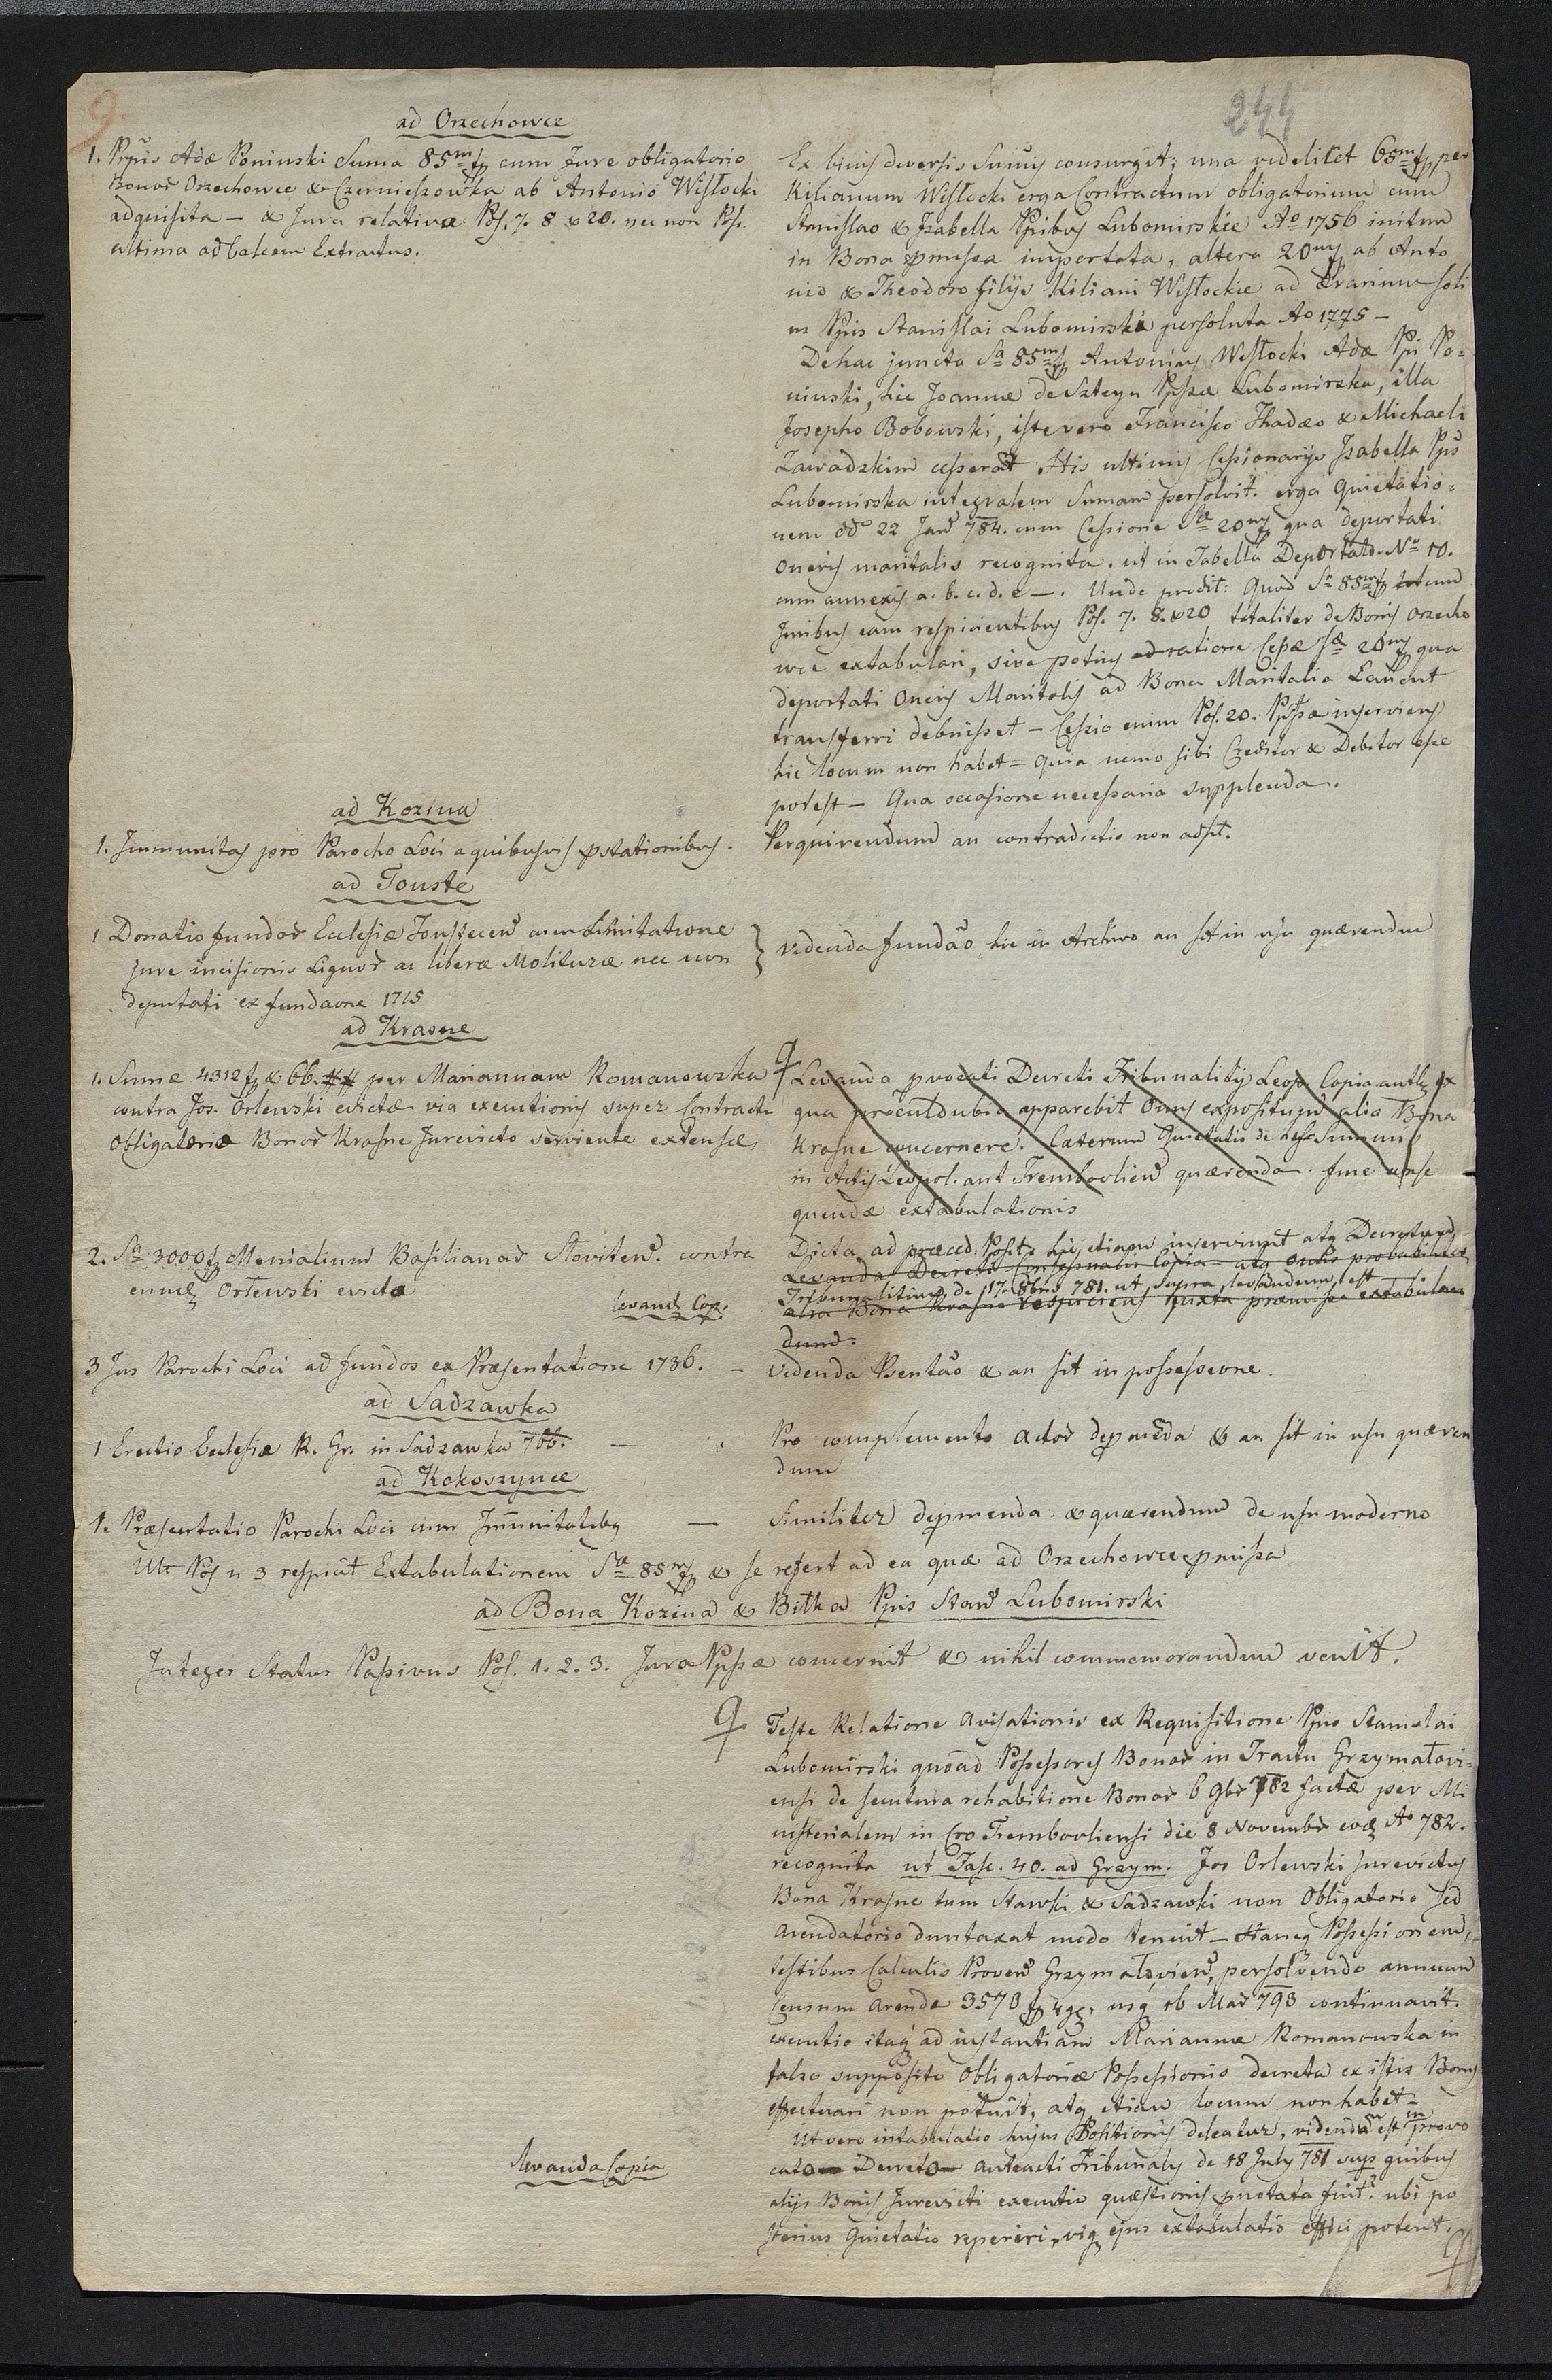 9.
244
ad Orzechowce
1. Ppis Adæ Poninski Suma 85m fp cum Jure obligatorio
Bonor Orzechowce & Czernieszowka ab Antonio Wisłocki
adquisita — & Jura relativa Pos. 7. 8 & 20. nec non Pos.
ultima ad Calcem Extractus.
Ex binis diversis Sumis consurgit; una videlicet 65m fp per
Kilianum Wisłocki erga Contractum obligatorium cum
Stanislao & Izabella Ppibus Lubomirskie Ao 1756 initum
in Bona pmissa importata, altera 20m fp ab Anto
nio & Theodoro filijs Kiliani Wisłockie ad Ærarium soli
us Ppis Stanislai Lubomirski persoluta Ao 1775 —
De hac juncta Sa 85m fp Antonius Wisłocki Adæ Ppi Po=
ninski, hic Joannæ de Szteyn Ppssæ Lubomirska, illa
Josepho Bobowski, iste vero Francisco Thadæo & Michaeli
Zawadzkim cesserat. His ultimis Cessionarijs Isabella Pps
Lubomirska integralem Sumam persolvit. erga Quietatio=
nem ddo 22 Jan 784. cum Cessione Sæ 20m fp qua deportati
oneris maritalis recognita. ut in Tabella Deportatd. No 10.
cum annexis a. b. c. d. e —. Unde prodit: Quod Sa 85m fp tot cum
Juribus eam respicientibus Pos. 7. 8. & 20 totaliter de Bonis Orzecho
wce extabulari, sive potius ad ratione Cessæ Sæ 20m fp qua
deportati Oneris Maritalis ad Bona Maritalia
transferri debuisset — Cessio enim Pos. 20. Ppssæ inserviens
hic locum non habet = Quia nemo sibi Creditor & Debitor esse
potest — Qua occasione necessaria supplenda.
ad Kozina
1. Immunitas pro Parocho Loci a quibusvis pstationibus.
Perquirendum an contradictio non adsit.
ad Touste
1 Donatio fundor Ecclesiæ Toustecen cum Limitatione
jure incisionis Lignor ac liberæ Molituræ nec non
deputati ex fundaone 1715
} videnda fundao hic in Archivo an sit in usu quærendum
ad Krasne
1. Sumæ 4312 fp & 66. ## per Mariannam Romanowska
contra Jos. Orlewski evictæ via executionis super Contractu
Obligatorio Bonor Krasne Jurevicto serviente extensæ,
Levanda provocati Decreti Tribunalitij Leop. Copia auth ex
qua proculdubio apparebit Onus expositum alia Bona
Krasne concernere. Cæterum Quietatio de his Sumis
in Actis Leopol. aut Trembovlien quærenda. fine conse
quendæ extabulationis
2. Sa 3000 fp Monialium Basilianar Słoviten. contra
eundem Orłewski evicta
levand Cop.
Dicta ad præced. Posit. hic etiam inserviunt atq Decretum
Levanda Decreti Copia
Tribunalitium de 17 8bris 781. ut supra levandum est
alia Bona Krasne respiciens juxta præmissa extabulan
dum.
3 Jus Parochi Loci ad fundos ex Præsentatione 1736. —
Videnda Psentao & an sit in possessione.
ad Sadzawka
1 Erectio Ecclesiæ R. Gr. in Sadzawka 766. —
Pro complemento Actor depmenda & an sit in usu quæren
dum
ad Kokoszynce
1. Præsentatio Parochi Loci cum Immunitatibus —
Similiter depmenda & quærendum de usu moderno
Ult Pos n 3 respicit Extabulationem Sæ 85m fp & se refert ad ea quæ ad Orzechowce pmissa
ad Bona Kozina & Bitka Ppis Stan Lubomirski
Integer Status Passivus Pos. 1. 2. 3. Jura Ppssæ concernit & nihil commemorandum venit.
Teste Relatione Avisationis ex Requisitione Ppis Stanislai
Lubomirski quoad Possessores Bonor in Tractu Grzymałovi=
ensi de secutura rehabitione Bonor 6 9br 782 factæ per Mi
nisterialem in Cro Trembovliensi die 8 Novembr eod Ao 782.
recognita ut Fasc. 40. ad Grzym. Jos Orlewski Jurevictus
Bona Krasne tum Stawki & Sadzawki non Obligatorio sed
Arendatorio duntaxat modo tenuit — Hancq Possessionem,
testibus Calculis Proven Grzymałovien, persolvendo annuum
Censum Arenda 3570 fp 4 g, usq ab Mar 793 continuavit.
executio itaq ad instantiam Mariannæ Romanowska in
falso supposito Obligatoriæ Possessionis decreta ex istis Bonis
effectuari non potuit, atq etiam locum non habet —
Ut vero intabulatio hujus Positionis deleatur, videndum est in provo
cato Decreto anteacti Tribunalis de 18 July 781 sup quibus
alijs Bonis Jurevicti executio quæstionis pnotata fuit? ubi po
sterius Quietatio reperiri, viq ejus extabulatio effici poterit.
levanda Copia